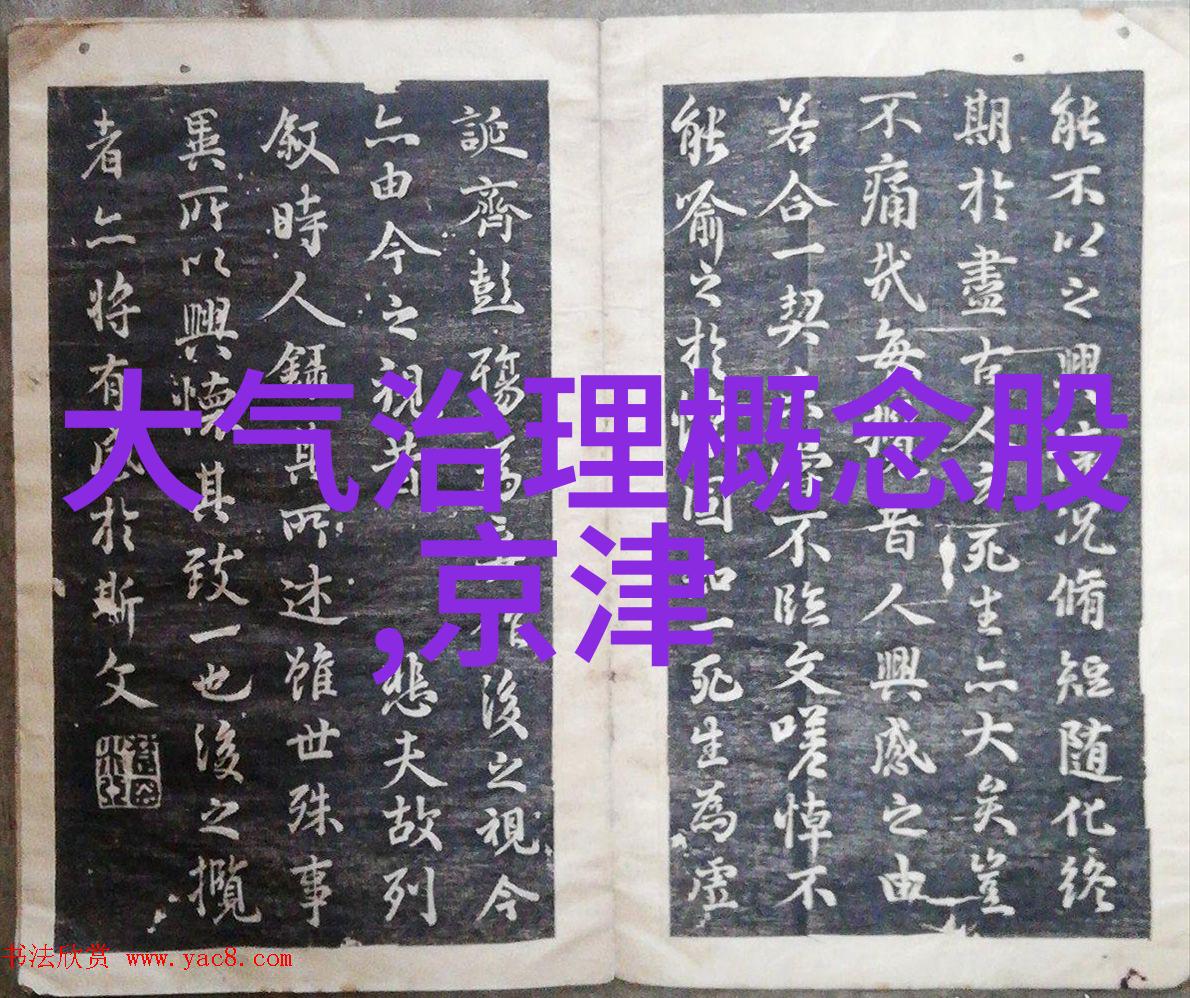 能不以之興況脩短随化終
期於盡古人云死生亦大矣豈
不痛哉每攬昔人興感之由
若合一契不臨文嗟悼不
能喻之於懷固知一死生為虛
誕齊彭殤為妄作後之視今
亦由今之視昔悲夫故列
敘時人錄其所述雖世殊事
異所以興懷其致一也後之攬
者亦將有感於斯文
大气治理概念股
,京津
书法欣赏 www.yac8.com